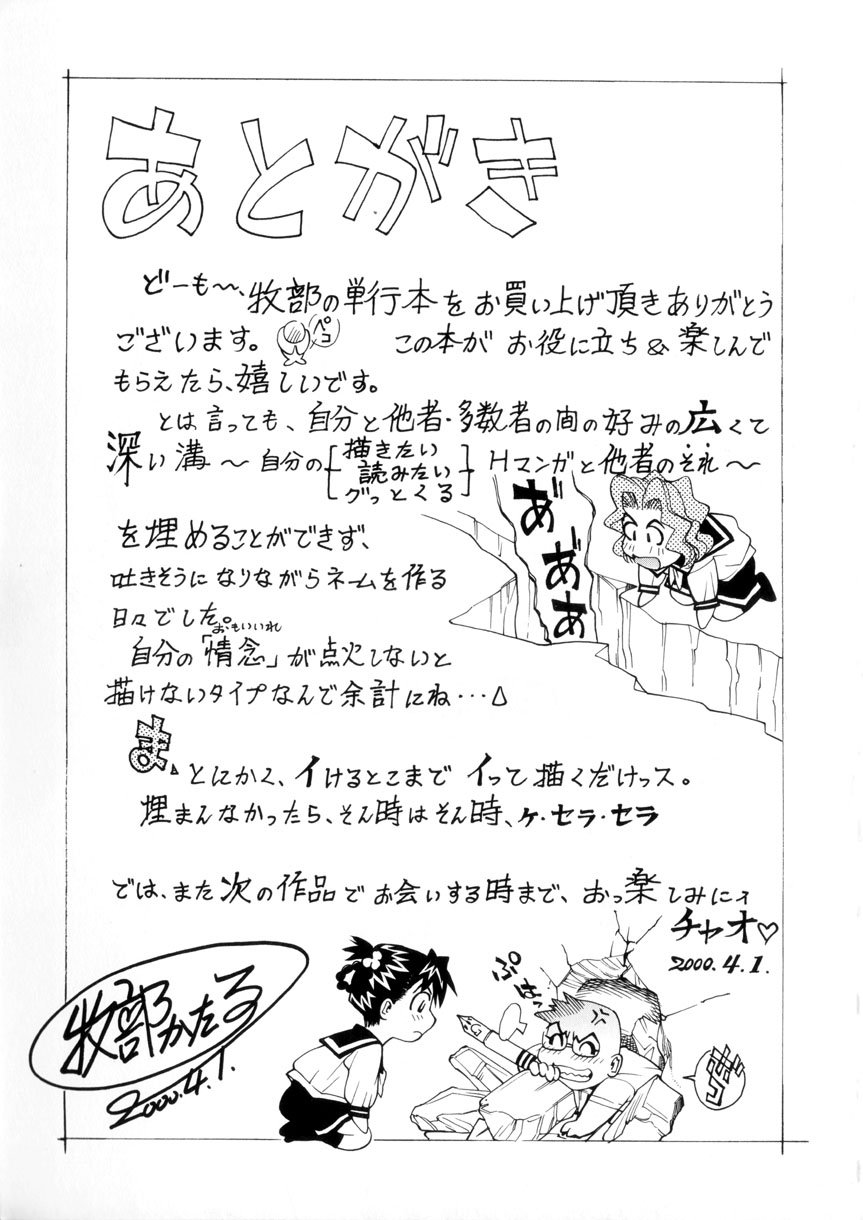 あとがき
どーも〜、牧部の単行本をお買い上げ頂きありがとう
ございます。 ペコ この本が お役に立ち & 楽しんで
もらえたら、嬉しいです。
とは言っても、自分と他者・多数者の間の好みの広くて
深い溝 〜 自分の[描きたい
読みたい
グっとくる]Hマンガと他者のそれ〜
を埋めることができず、
吐きそうになりながらネームを作る
日々でした。
おもいいれ
自分の「情念」が点火しないと
描けないタイプなんで余計にね…
あ゛あ゛あ゛
ま、とにかく、イけるとこまで イって描くだけっス。
埋まんなかったら、そん時はそん時、ケ・セラ・セラ
では、また次の作品で お会いする時まで、おっ楽しみにィ
チャオ♡
2000.4.1.
牧部かたる
2000.4.1.